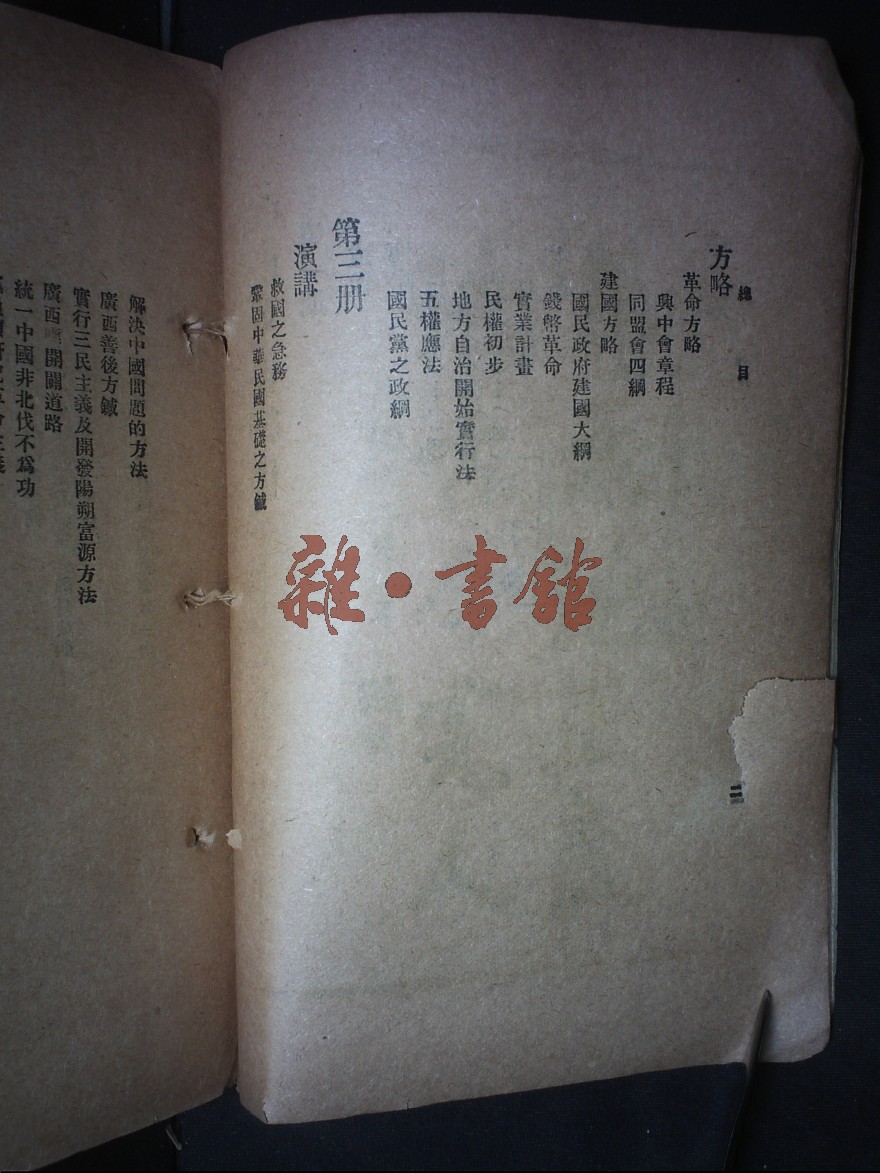 總目
二
方略
革命方略
興中會章程
同盟會四綱
建國方略
國民政府建國大綱
錢幣革命
實業計畫
民權初步
地方自治開始實行法
五權憲法
國民黨之政綱
第三册
演講
救國之急務
鞏固中華民國基礎之方鍼
解決中國問題的方法
廣西善後方鍼
實行三民主義及開發陽朔富源方法
廣西 開闢道路
統一中國非北伐不爲功
雜·書館